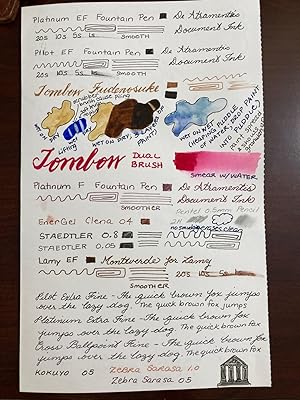 Platinum EF Fountain Pen De Atramentis
Document Ink
20s 10s 5s 1s SMOOTH
Pilot EF Fountain Pen De Atramentis
Document Ink
20s 10s 5s 1s SMOOTH
Tombow Fudenosuke
WET ON DRY, 
Lifting
WET ON WET
(HEAPING PUDDLE
OF WATER, DROP PAINT
Tombow DUAL
BRUSH
smear w/ WATER
Platinum F Fountain Pen De Atramentis
Document Ink
SMOOTHER
EnerGel Clena 0.4
Pentel Pencil
2H
STAEDTLER 0.8
no smudge
STAEDTLER 0.05
Lamy EF Monteverde for Lamy
20s 10s 5s 1s
SMOOTHER
Pilot Extra Fine - The quick brown fox jumps
over the lazy dog. The quick brown fox jumps
Platinum Extra Fine - The quick brown fox
jumps over the lazy dog. The quick brown fox
Cross Ballpoint Fine - The quick brown fox
jumps over the lazy dog. The quick brown fox
KOKUYO 0.5 ZEBRA SARASA 1.0
Zebra Sarasa 0.5